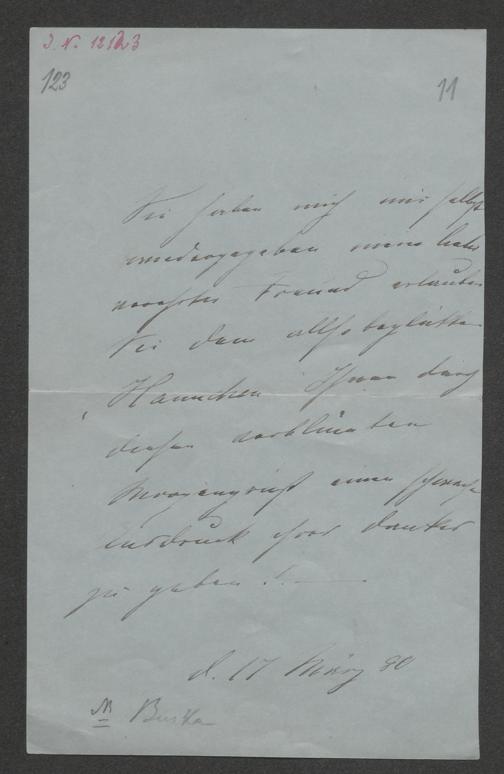 J. N. 12123
123
11
Sie haben mich mir selbst
wiedergegeben mein lieber
verehrter Freund erlauben
Sie dem also beglückten
Hannchen Ihnen durch
diesen verblümten
Morgengruß einen schwachen
Ausdruck ihres Dankes
zu geben!
d. 17 März 80
Buska